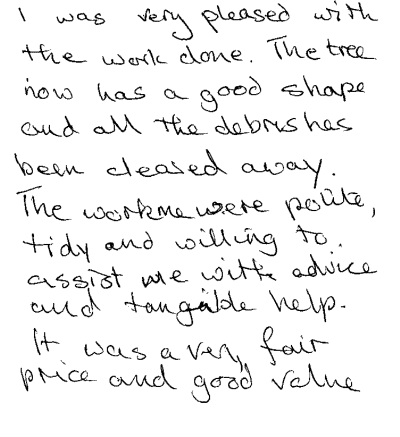 I was very pleased with
the work done. The tree
now has a good shape
and all the debris has
been cleared away.
The workme were polite,
tidy and willing to
assist me with advice
and tangible help.
It was a very fair
price and good value